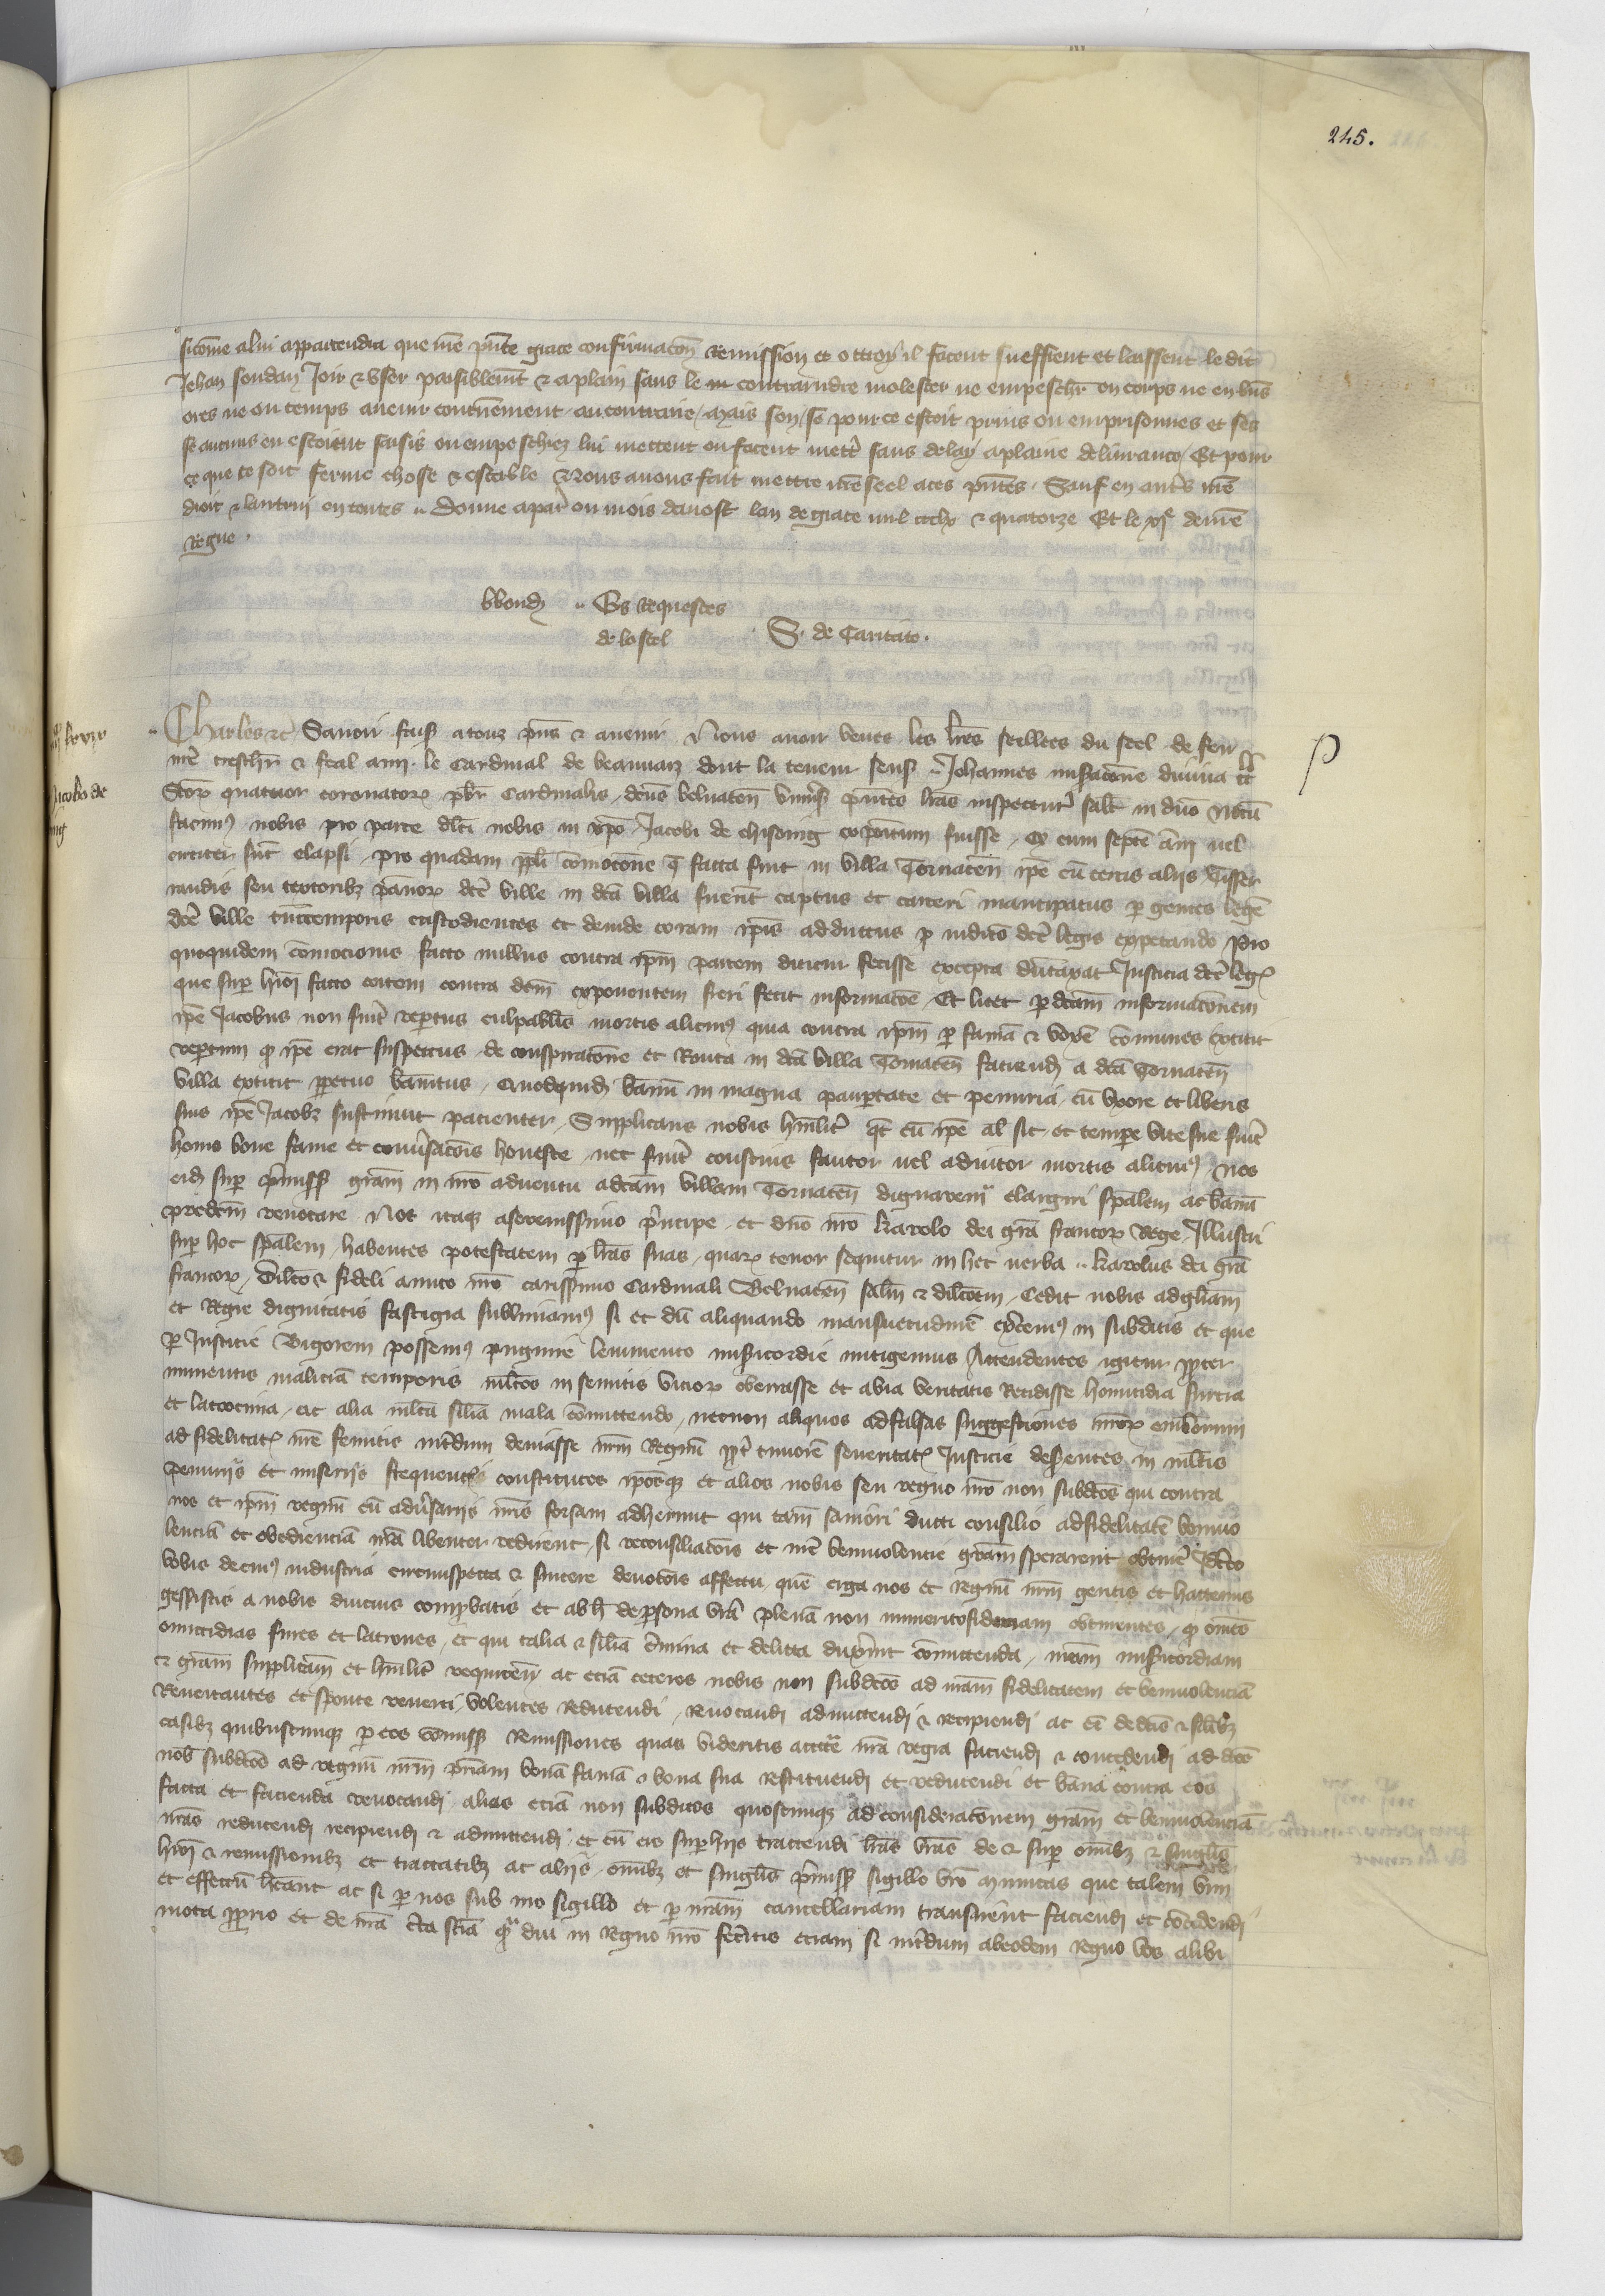 245.
sicome a lui appartendra que nre pnte grace confirmacon Remission et ottroy il facent sueffrent et laissent le dit
Jehan soudan Joir & vser paisiblemt & aplain sans le contraindre molester ne empeschr en corps ne en biens
ores ne ou temps auenir aucontraire mais son se pour ce estoit prins ou emprisonnes et ses
se aucuns en estoient saisis ou empeschiez lui mettent ou facent mettr sans delay aplaine deliurance Et pour
ce que ce soit ferme chose & estable Nous auons fait mettre nre seel a ces pntes Sauf en autrs nre
droit & lautrui en toutes Donne a par ou mois daoust lan de grace mil ccclx & quatorze Et le xje de nre
Regne
Es Requestes
de lostel
S. de Caritate.
Charles &c Sauoir fais a touz pns & auenir Nous auoir veues les lres seellees du seel de feu
nre treschr & feal ami le Cardinal de beauuaiz dont la teneur sensuit Johannes miseracone diuina tt
Stor quatuor coronator pbr Cardinalis dcus beluacen vniuersis pntes lras inspecturis salt in dno Notu
facimus nobis pro parte dlci nobis in xpo Jacobi de chisoing expoitum fuisse q cum septe anni uel
circiter sint elapsi pro quadam ppli comocone q facta fuit in villa Tornacen ipe cu certis alijs Tisser
randis seu textoribz pannor dce ville in dca villa fuerit captus et carceri mancipatus p gentes lege
dce ville tunctemporis custodientes et deinde coram ipis adductus p iudicio dce legis expetando pro
quoquidem comocionis facto nullus contra ipm partem dicitur fecisse excepta duntaxat Justicia dce legis
que sup huioi facto contra dcm exponentem fieri fecit informacoe Et licet p dcam informaconem
ipe Jacobus non fuit reptus culpabilis mortis alicuius quia contra ipm p fama & voce comunes extitit
reptum q ipe erat suspectus de conspiracone et Routa in dca villa Tornacen faciend a dca Tornacen
villa extitit ppetuo banitus Quodquid banu in magna paupertate et penuria cu vxore et liberis
suis ipe Jacobz sustinuit pacienter Supplicans nobis humilit qt cu ipe al sit et tempe vite sue fuit
homo bone fame et conuersacois honeste nec fuit conscius fautor uel adiutor mortis alicuius Nos
eid sup premissis gram in nro aduentu ad dcam villam Tornacen dignarem elargiri spalem ac banu
predcm reuocare Nos itaq a serenissimo principe et dno nro karolo dei gra francor Rege Illustri
sup hoc spalem habentes potestatem p lras suas quar tenor sequitur in hec verba karolus dei gra
francor Dilcto & fideli amico nro carissimo Cardinali Beluacen salm & dilcoem Cedit nobis ad gliam
et Regie dignitatis fastigia sublimamus si et du aliquando mansuetudine exercemus in subditis et que
p Justicie Rigorem possemus pugnire lenimento misericordie mitigemus Attendentes igitur ppter
iminentis malicia temporis mltos in semitis vicior oberrasse et abia veritatis Recidisse homicidia furcia
et latrocinia ac alia mlta silia mala comittendo necnon aliquos ad falsas suggestiones nror
ad fidelitatis nre semitis intdum deuiasse nrm Regnu ppt timore seueritatis Justicie deserentes in mltis
penurijs et miserijs frequentis constitutos iposq et alios nobis seu regno nro non subdtos qui contra
nos et ipm regnu cu aduersarijs nris forsam adherunt qui tam saniori ducti consilio ad fidelitate beniuo
lencia et obediencia nra libenter redirent si reconsiliacois et nre beniuolencie gram sperarent obtine Idcirco
vobis de cuius industria circunspecta & sincere deuocois affectu que erga nos et regnu nrm geritis et hactenus
gessistis a nobis diucius compbatis et ab h de persona vra plena non immerito fiduciam obtinentes q omes
omicidias fures et latrones et qui talia & silia crimina et delicta duxerint comittenda nram misericordiam
& gram supplicam et humilit requiren ac etia ceteros nobis non subdtos ad nram fidelitatem et beniuolencia
Reuertantes et sponte reuerti volentes Reducendi Reuocandi admittendi & recipiendi ac ei de dcis & silibz
casibz quibuscunq p eos comiss Remissiones quas videritis actte nra regia faciendi & concedendi ad dcos
nob subdtos ad regnu nrm priam bona fama & bona sua restituendi et reducendi et bana contra eos
facta et facienda reuocandi alias etia non subditos quoscunq ad consideraconem gram et beniuolencia
nras reducendi recipiendi & admittendi et cu eis sup hijs tractendi lras vras de & sup omibz & singulis
huioi & remissionibz et tractatibz ac alijs omibz et singulis premiss sigillo vro munitas que talem vim
et effectu heant ac si p nos sub nro sigillo et p nram cancellariam transirent faciendi et concedendi
motu pprio et de nra certa scia qdiu in Regno nro feritis eciam si intdum ab eodem Regno vos alibi